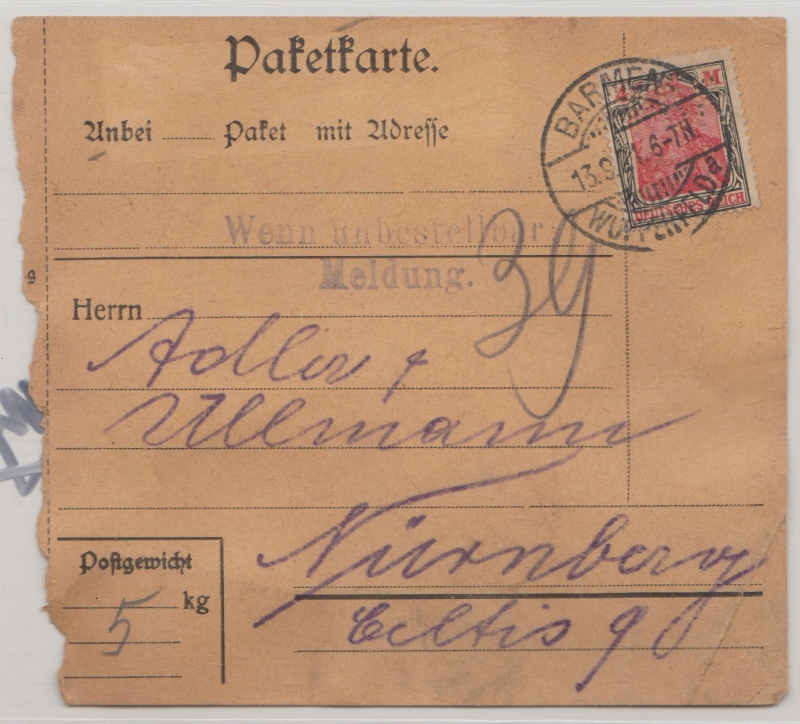 Paketkarte.
4 M
BARMEN
Anbei Paket mit Adresse
13.9. 6-7N.
DEUTSCHES REICH
Wenn unbestellbar
Meldung.
39
Herrn
Adler &
Ullmann
Postgewicht
Nürnberg
5 kg
Celtis 9